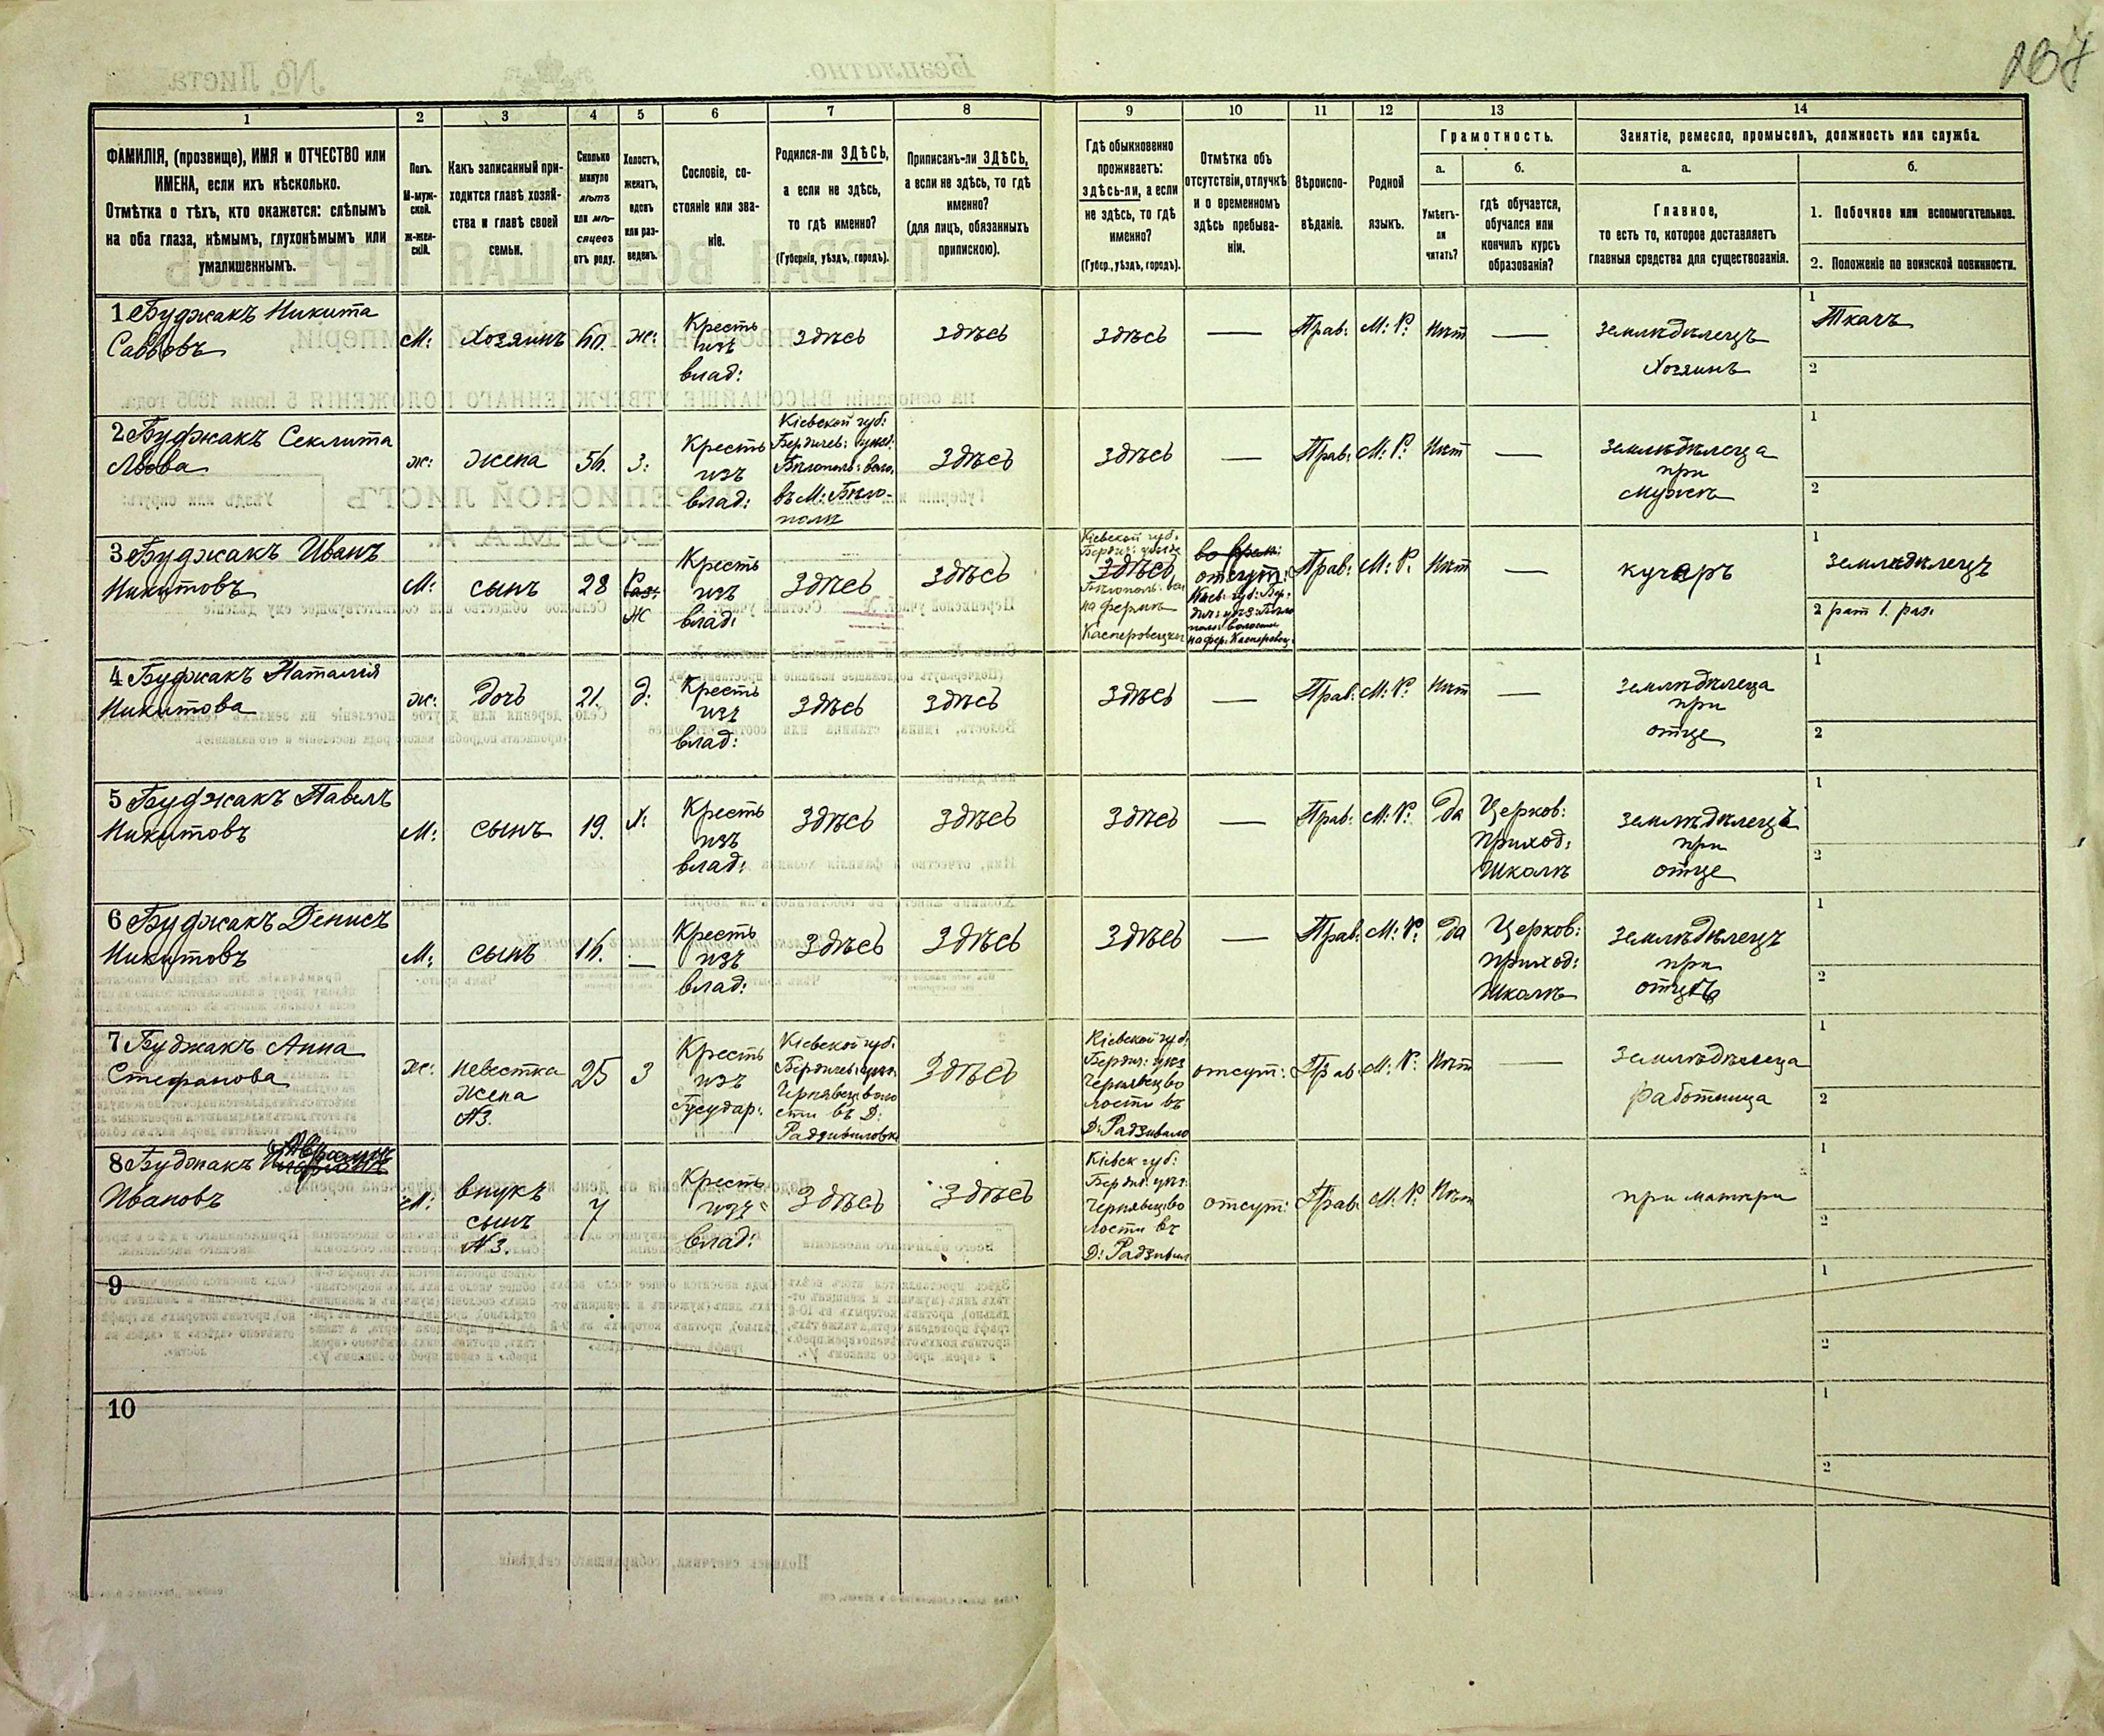 137
1
2
3
4
5
6
7
8
9
10
11
12
13
14
ФАМИЛІЯ, (прозвище), ИМЯ и ОТЧЕСТВО или
ИМЕНА, если ихъ нѣсколько.
Отмѣтка о тѣхъ, кто окажется: слѣпымъ
на оба глаза, нѣмымъ, глухонѣмымъ или
умалишеннымъ.
Полъ.
М-муж-
ской.
Ж-жен-
скій.
Какъ записанный при-
ходится главѣ хозяй-
ства и главѣ своей
семьи.
Сколько
минуло
лѣтъ
или мѣ-
сяцевъ
отъ роду.
Холостъ,
женатъ,
вдовъ
или раз-
веденъ.
Сословіе, со-
стояніе или зва-
ніе.
Родился-ли ЗДѢСЬ,
а если не здѣсь,
то гдѣ именно?
(Губернія, уѣздъ, городъ).
Приписанъ-ли ЗДѢСЬ,
а если не здѣсь, то гдѣ
именно?
(для лицъ, обязанныхъ
припискою).
Гдѣ обыкновенно
проживаетъ:
здѣсь-ли, а если
не здѣсь, то гдѣ
именно?
(Губер., уѣздъ, городъ).
Отмѣтка объ
отсутствіи, отлучкѣ
и о временномъ
здѣсь пребыва-
ніи.
Вѣроиспо-
вѣданіе.
Родной
языкъ.
Грамотность.
а.
Умѣетъ-
ли
читать?
б.
гдѣ обучается,
обучался или
кончилъ курсъ
образованія?
Занятіе, ремесло, промыселъ, должность или служба.
а.
Главное,
то есть то, которое доставляетъ
главныя средства для существованія.
б.
1. Побочное или вспомогательное.
2. Положеніе по воинской повинности.
1 Буджакъ Никита
Саввовъ
М:
Хозяинъ
60.
ж:
Кресть
изъ
влад:
здѣсь
здѣсь
здѣсь
—
Прав:
М: Р:
Нѣт
—
землѣдѣлецъ
Хозяинъ
1
Ткачъ
2
2 Буджакъ Секлита
Львова
ж:
жена
56.
з:
Кресть
изъ
влад:
Кіевской губ:
Бердичев: уѣзд:
Бѣлополь: воло.
въ М: Бѣло-
полѣ
здѣсь
здѣсь
—
Прав:
М: Р:
Нѣт
землѣдѣлеца
при
мужѣ
1
2
3 Буджакъ Иванъ
Никитовъ
М:
сынъ
28
Ж
Кресть
изъ
влад:
здѣсь
здѣсь
Кіевской губ.
Бердич: уѣзде
здѣсь
Бѣлополь: вол
на фермѣ
Касперовецкой
во врем:
отсут:
Кіев: губ: Бер-
дич: уѣз: Бѣло
поль: волости
на фер: Касперовец:
Прав:
М: Р.
Нѣт
—
кучеръ
1
землѣдѣлецъ
2 рат 1. раз:
4 Буджакъ Наталія
Никитова
ж:
дочь
21.
д:
Кресть
изъ
влад:
здѣсь
здѣсь
здѣсь
—
Прав:
М: Р:
Нѣт
—
землѣдѣлеца
при
отце
1
2
5 Буджакъ Павелъ
Никитовъ
М:
сынъ
19.
х:
Кресть
изъ
влад:
здѣсь
здѣсь
здѣсь
—
Прав:
М: Р:
Да
Церков:
приход:
школѣ
землѣдѣлецъ
при
отце
1
2
6 Буджакъ Денисъ
Никитовъ
М:
сынъ
16.
—
Кресть
изъ
влад:
здѣсь
здѣсь
здѣсь
—
Прав:
М: Р:
Да
Церков:
приход:
школѣ
землѣдѣлецъ
при
отцѣ
1
2
7 Буджакъ Анна
Стефанова
ж:
невестка
жена
№3.
25
З
Кресть
изъ
Государ:
Кіевской губ.
Бердичев: уѣз.
Чернявец: воло
сти въ Д:
Радзивиловкѣ
здѣсь
Кіевской губ.
Бердич: уѣз
Чернявец: во
лости въ
Д: Радзивило
отсут:
Прав:
М: Р:
Нѣт
—
землѣдѣлеца
работница
1
2
8 Буджакъ
Ивановъ
М:
внукъ
сынъ
№3.
7
Кресть
изъ
влад:
здѣсь
здѣсь
Кіевск губ:
Бердич: уѣз:
Чернявец: во
лости въ
Д: Радзивил
отсут:
Прав:
М: Р:
Нѣт
при матери
1
2
9
1
2
10
1
2